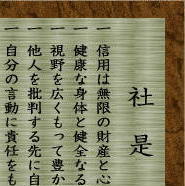 社是
一信用は無限の財産と心
一健康な身体と健全なる
一視野を広くもって豊か
一他人を批判する先に自
一自分の言動に責任をも